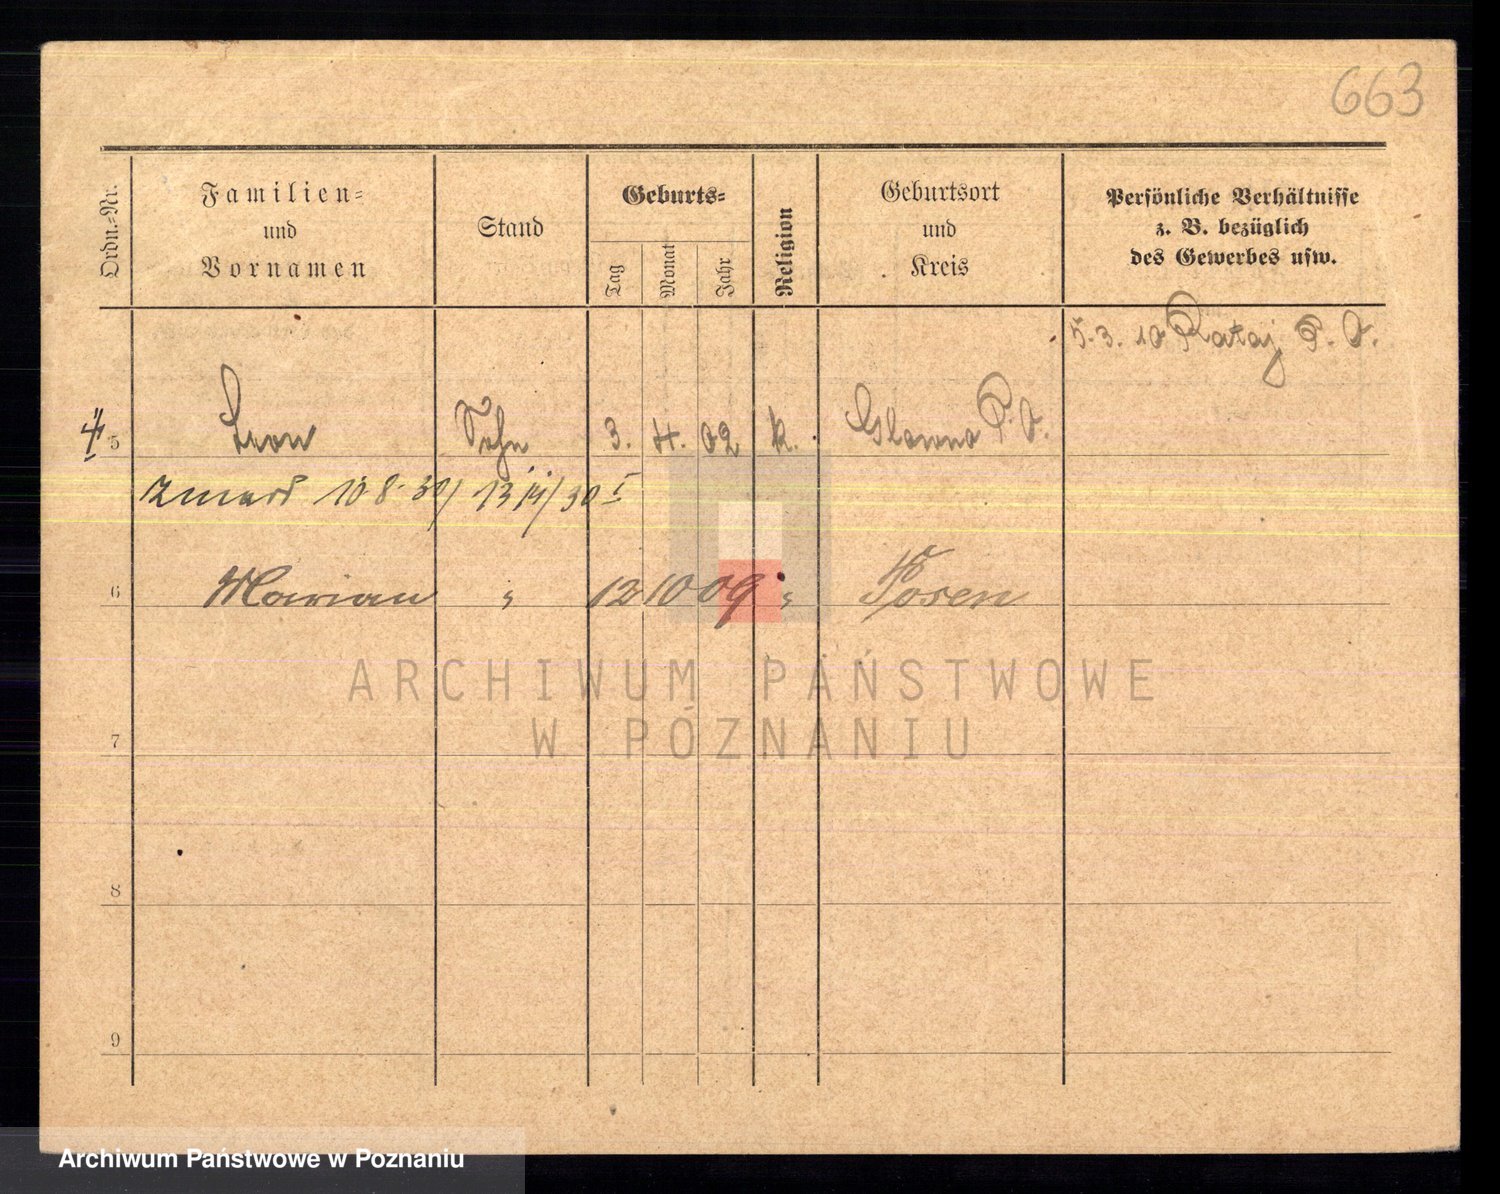 663
Ordn.-Nr.
Familien-
und
Vornamen
Stand
Geburts-
Tag
Monat
Jahr
Religion
Geburtsort
und
Kreis
Persönliche Verhältnisse
z. B. bezüglich
des Gewerbes usw.
5.3.10 Rataj P. O.
5 Leon Sohn 3. 4. 02 k. Glowno P. O.
zmarł 10 8. 30/ 1314/30 I
6 Marian " 12 10 09 " Posen
ARCHIWUM PAŃSTWOWE
W POZNANIU
7
8
9
Archiwum Państwowe w Poznaniu